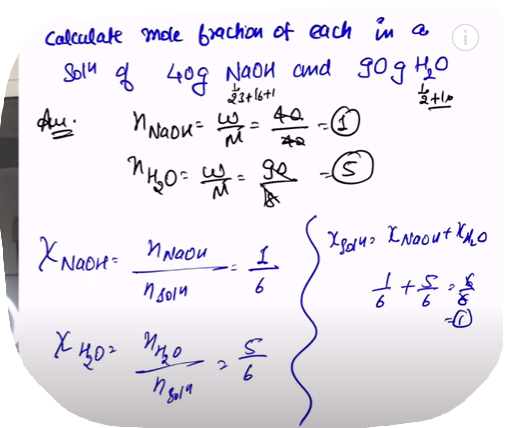 Calculate mole fraction of each in a
Solⁿ of 40g NaOH and 90g H₂O
23+16+1
2+16
Ans.
n NaOH = w/M = 40/40 = 1
n H₂O = w/M = 90/18 = 5
x NaOH = n NaOH / n solⁿ = 1/6
x H₂O = n H₂O / n solⁿ = 5/6
x solⁿ = x NaOH + x H₂O
1/6 + 5/6 = 6/6
= 1